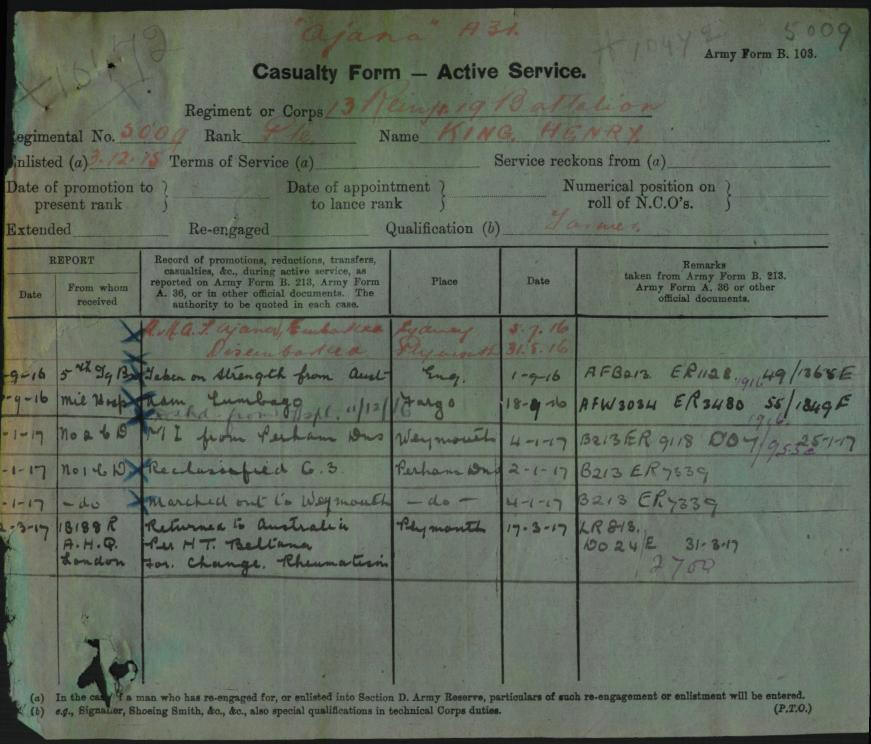 "Ajana" A31.
X10472
X10472
5009
Army Form B. 103.
Casualty Form — Active Service.
Regiment or Corps 13 Reinf. 19 Battalion
egimental No. 5009 Rank Pte. Name KING, HENRY.
nlisted (a) 3.12.15 Terms of Service (a) Service reckons from (a)
Date of promotion to present rank } Date of appointment to lance rank } Numerical position on roll of N.C.O's. }
Extended Re-engaged Qualification (b) Farmer
REPORT
Date
From whom received
Record of promotions, reductions, transfers, casualties, &c., during active service, as reported on Army Form B. 213, Army Form A. 36, or in other official documents. The authority to be quoted in each case.
Place
Date
Remarks taken from Army Form B. 213, Army Form A. 36 or other official documents.
Ajana, Embarked Sydney 5.7.16
Disembarked Plymouth 31.8.16
-9-16 5th Tg Bn Taken on Strength from Aust Eng. 1-9-16 AFB213 ER1128 49/1368E
-9-16 Mil Hosp Adm, Lumbago Fargo 18-9-16 AFW3034 ER3480 55/1849E
from Hspt. 11/12/16
-1-17 No 2 C D M I from Perham Dns Weymouth 4-1-17 B213 ER 9118 DO 4/ 25-1-17
-1-17 No 1 C D Reclassified C.3. Perham Dns 2-1-17 B213 ER7339
-1-17 -do- Marched out to Weymouth -do- 4-1-17 B213 ER7339
-3-17 1B188R A.H.Q. London Returned to Australia Plymouth 17-3-17 LR213.
Per HT. Beltana DO24/E 31-3-17
For. Change. Rheumatism 2700
(a) In the case of a man who has re-engaged for, or enlisted into Section D. Army Reserve, particulars of such re-engagement or enlistment will be entered.
(b) e.g., Signaller, Shoeing Smith, &c., &c., also special qualifications in technical Corps duties. (P.T.O.)